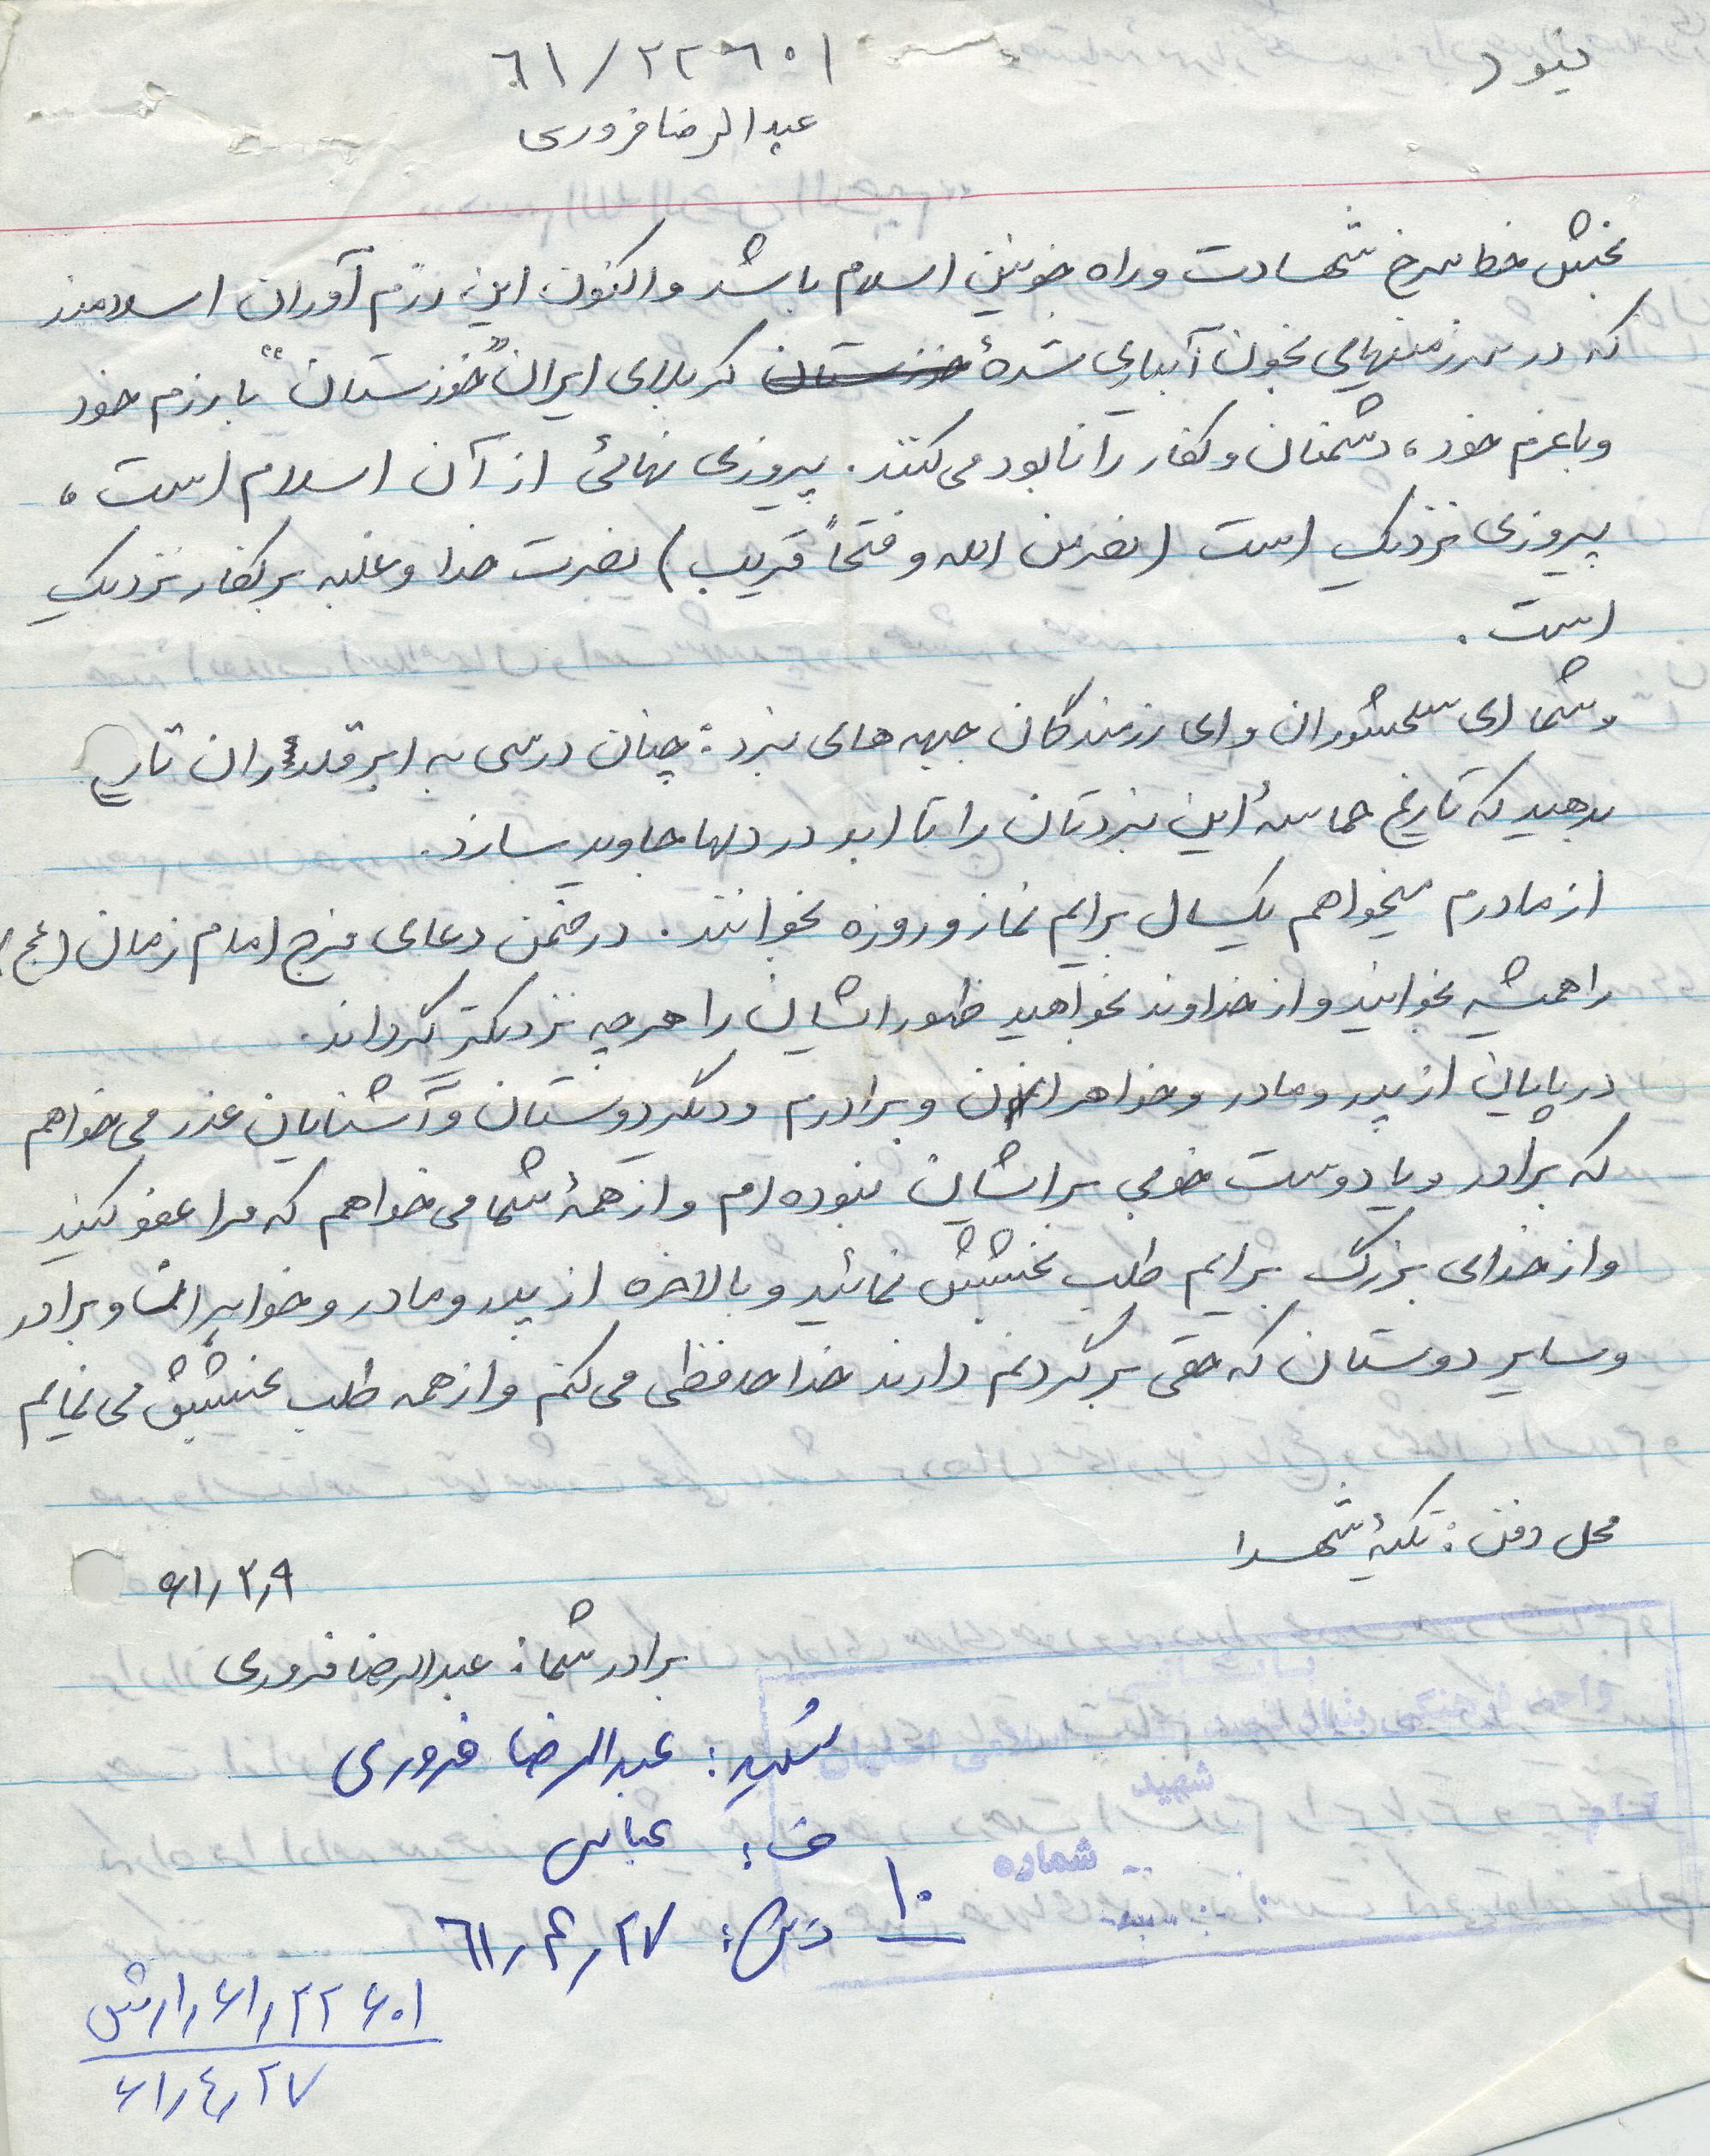 ۶۱/۲۲۶۰۱
عبدالرضا فروری
بخش خط سرخ شهادت و راه خونین اسلام باشد و اکنون این رزم آوران اسلامند
که در سرزمینهایی بخون آبیاری شدهٔ خوزستان کربلای ایران "خوزستان" با رزم خود
و با عزم خود، دشمنان و کفار را نابود می کنند. پیروزی نهائی از آن اسلام است،
پیروزی نزدیک است (نصر من الله و فتحاً قریب) نصرت خدا و غلبه بر کفار نزدیک
است.
و شما ای سلحشوران و ای رزمندگان جبهه های نبرد: چنان درسی به ابر قلدران تاریخ
بدهید که تاریخ حماسهٔ این نبردتان را تا ابد در دلها جاوید سازد.
از مادرم میخواهم یکسال برایم نماز و روزه بخوانند. در ضمن دعای فرج امام زمان (عج)
را همیشه بخوانید و از خداوند بخواهید ظهور ایشان را هر چه نزدیکتر گرداند.
در پایان از پدر و مادر و خواهران و برادرم و دیگر دوستان و آشنایان عذر می خواهم
که برادر و یا دوست خوبی برایشان نبوده ام و از همهٔ شما می خواهم که مرا عفو کنید
و از خدای بزرگ برایم طلب بخشش نمائید و بالاخره از پدر و مادر و خواهران و برادر
و سایر دوستان که حقی بر گردنم دارند خداحافظی می کنم و از همه طلب بخشش می نمایم
محل دفن: تکیهٔ شهدا
۶۱/۳/۹
برادر شما: عبدالرضا فروری
شهید: عبدالرضا فروری
ف: عباس
۱۰
ت ش: ۶۱/۴/۲۷
شهید
شماره
۶۱/۲۲۶۰۱/ارتش
۶۱/٤/۲۷